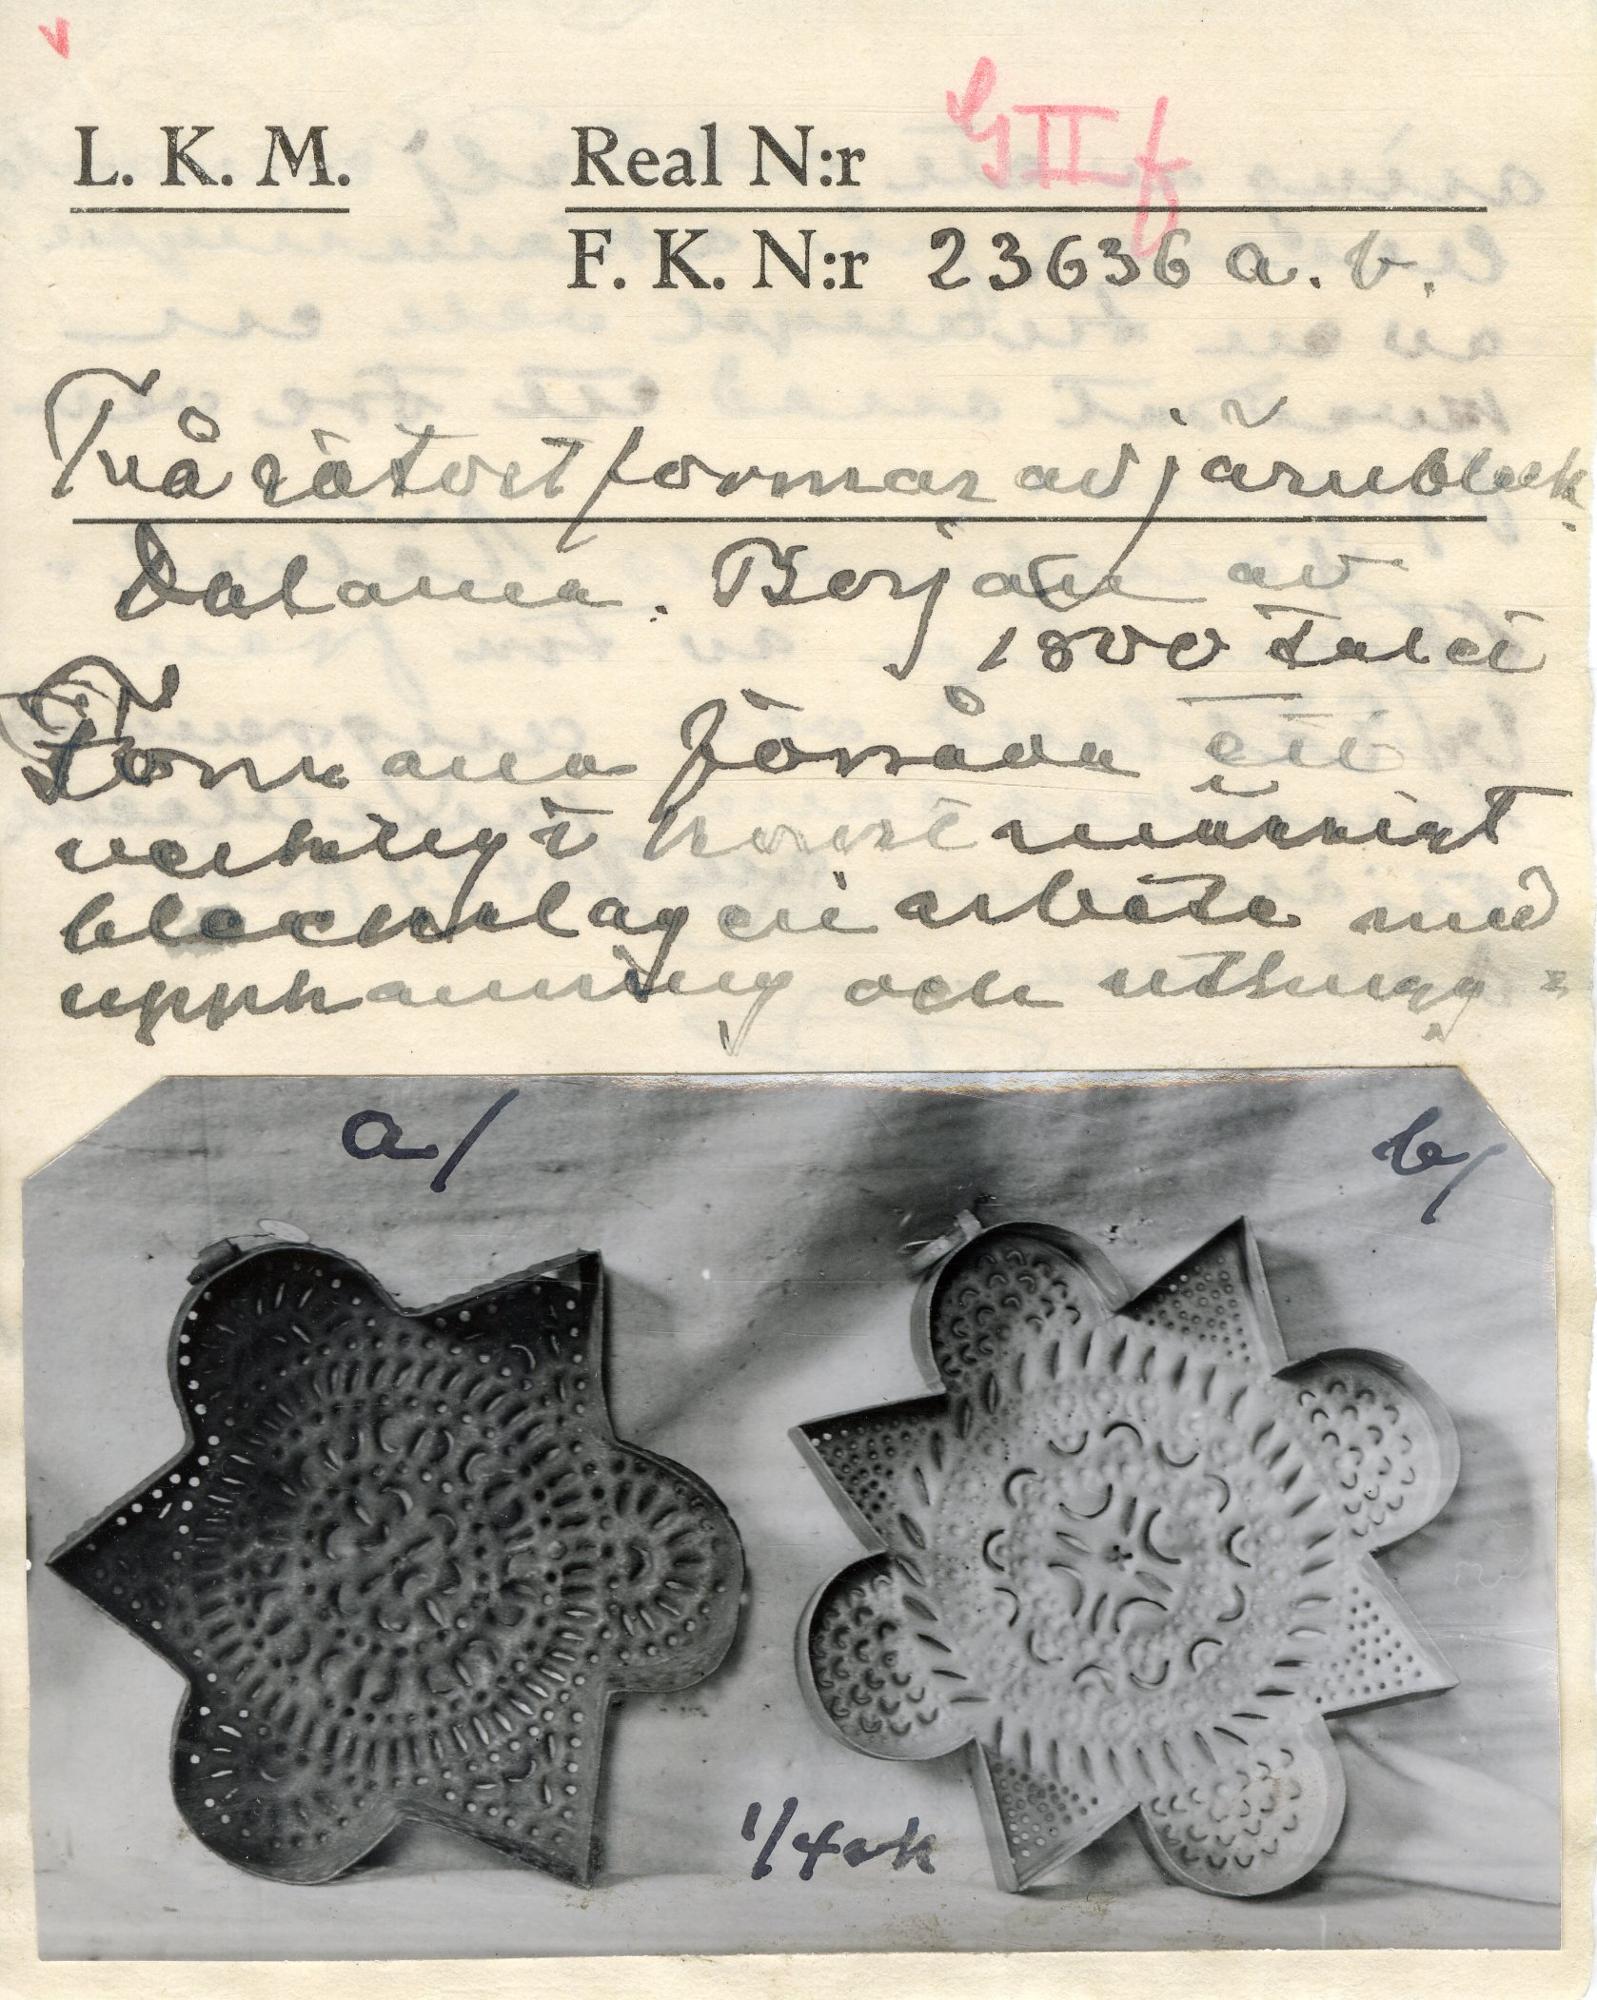 L. K. M.
Real N:r G II f
F. K. N:r 23636 a. b.
Två sötostformar av järnbleck.
Dalarna. Början av
1800 talet
Formarna förråda ett
verkligt konstmässigt
bleckslageri arbete med
upphamring och uthugg=
a/ b/
1/4 sk